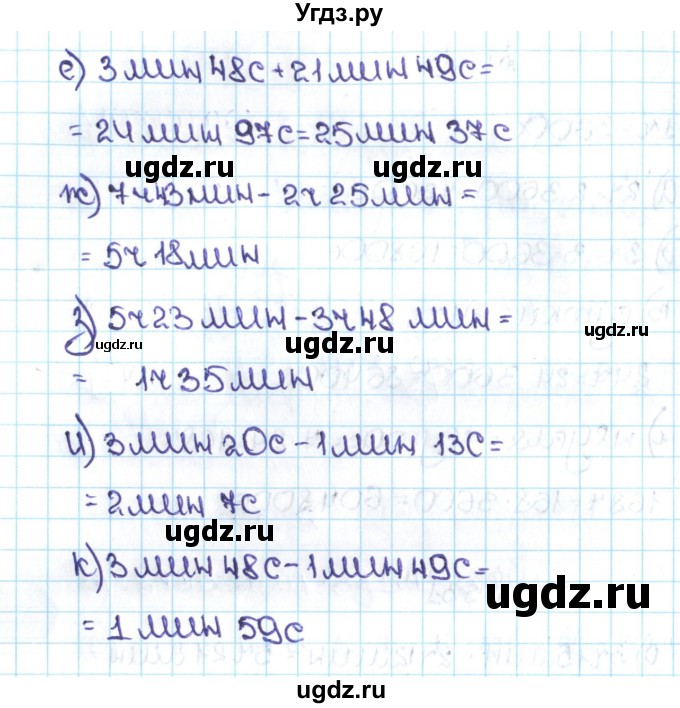 Угдз.ру
е) 3мин 48с+21мин 49с=
=24мин 97с=25мин 37с
ugdz.ru ugdz.ru
ж) 7ч43мин-2ч25мин=
=5ч18мин
ugdz.ru
з) 5ч23мин-3ч48 мин=
ugdz.ru ugdz.ru
= 1ч35мин
и) 3мин20с-1мин 13с=
=2мин 7с
ugdz.ru
к) 3мин48с-1мин49с=
ugdz.ru
=1мин 59с
ugdz.ru
ugdz.ru